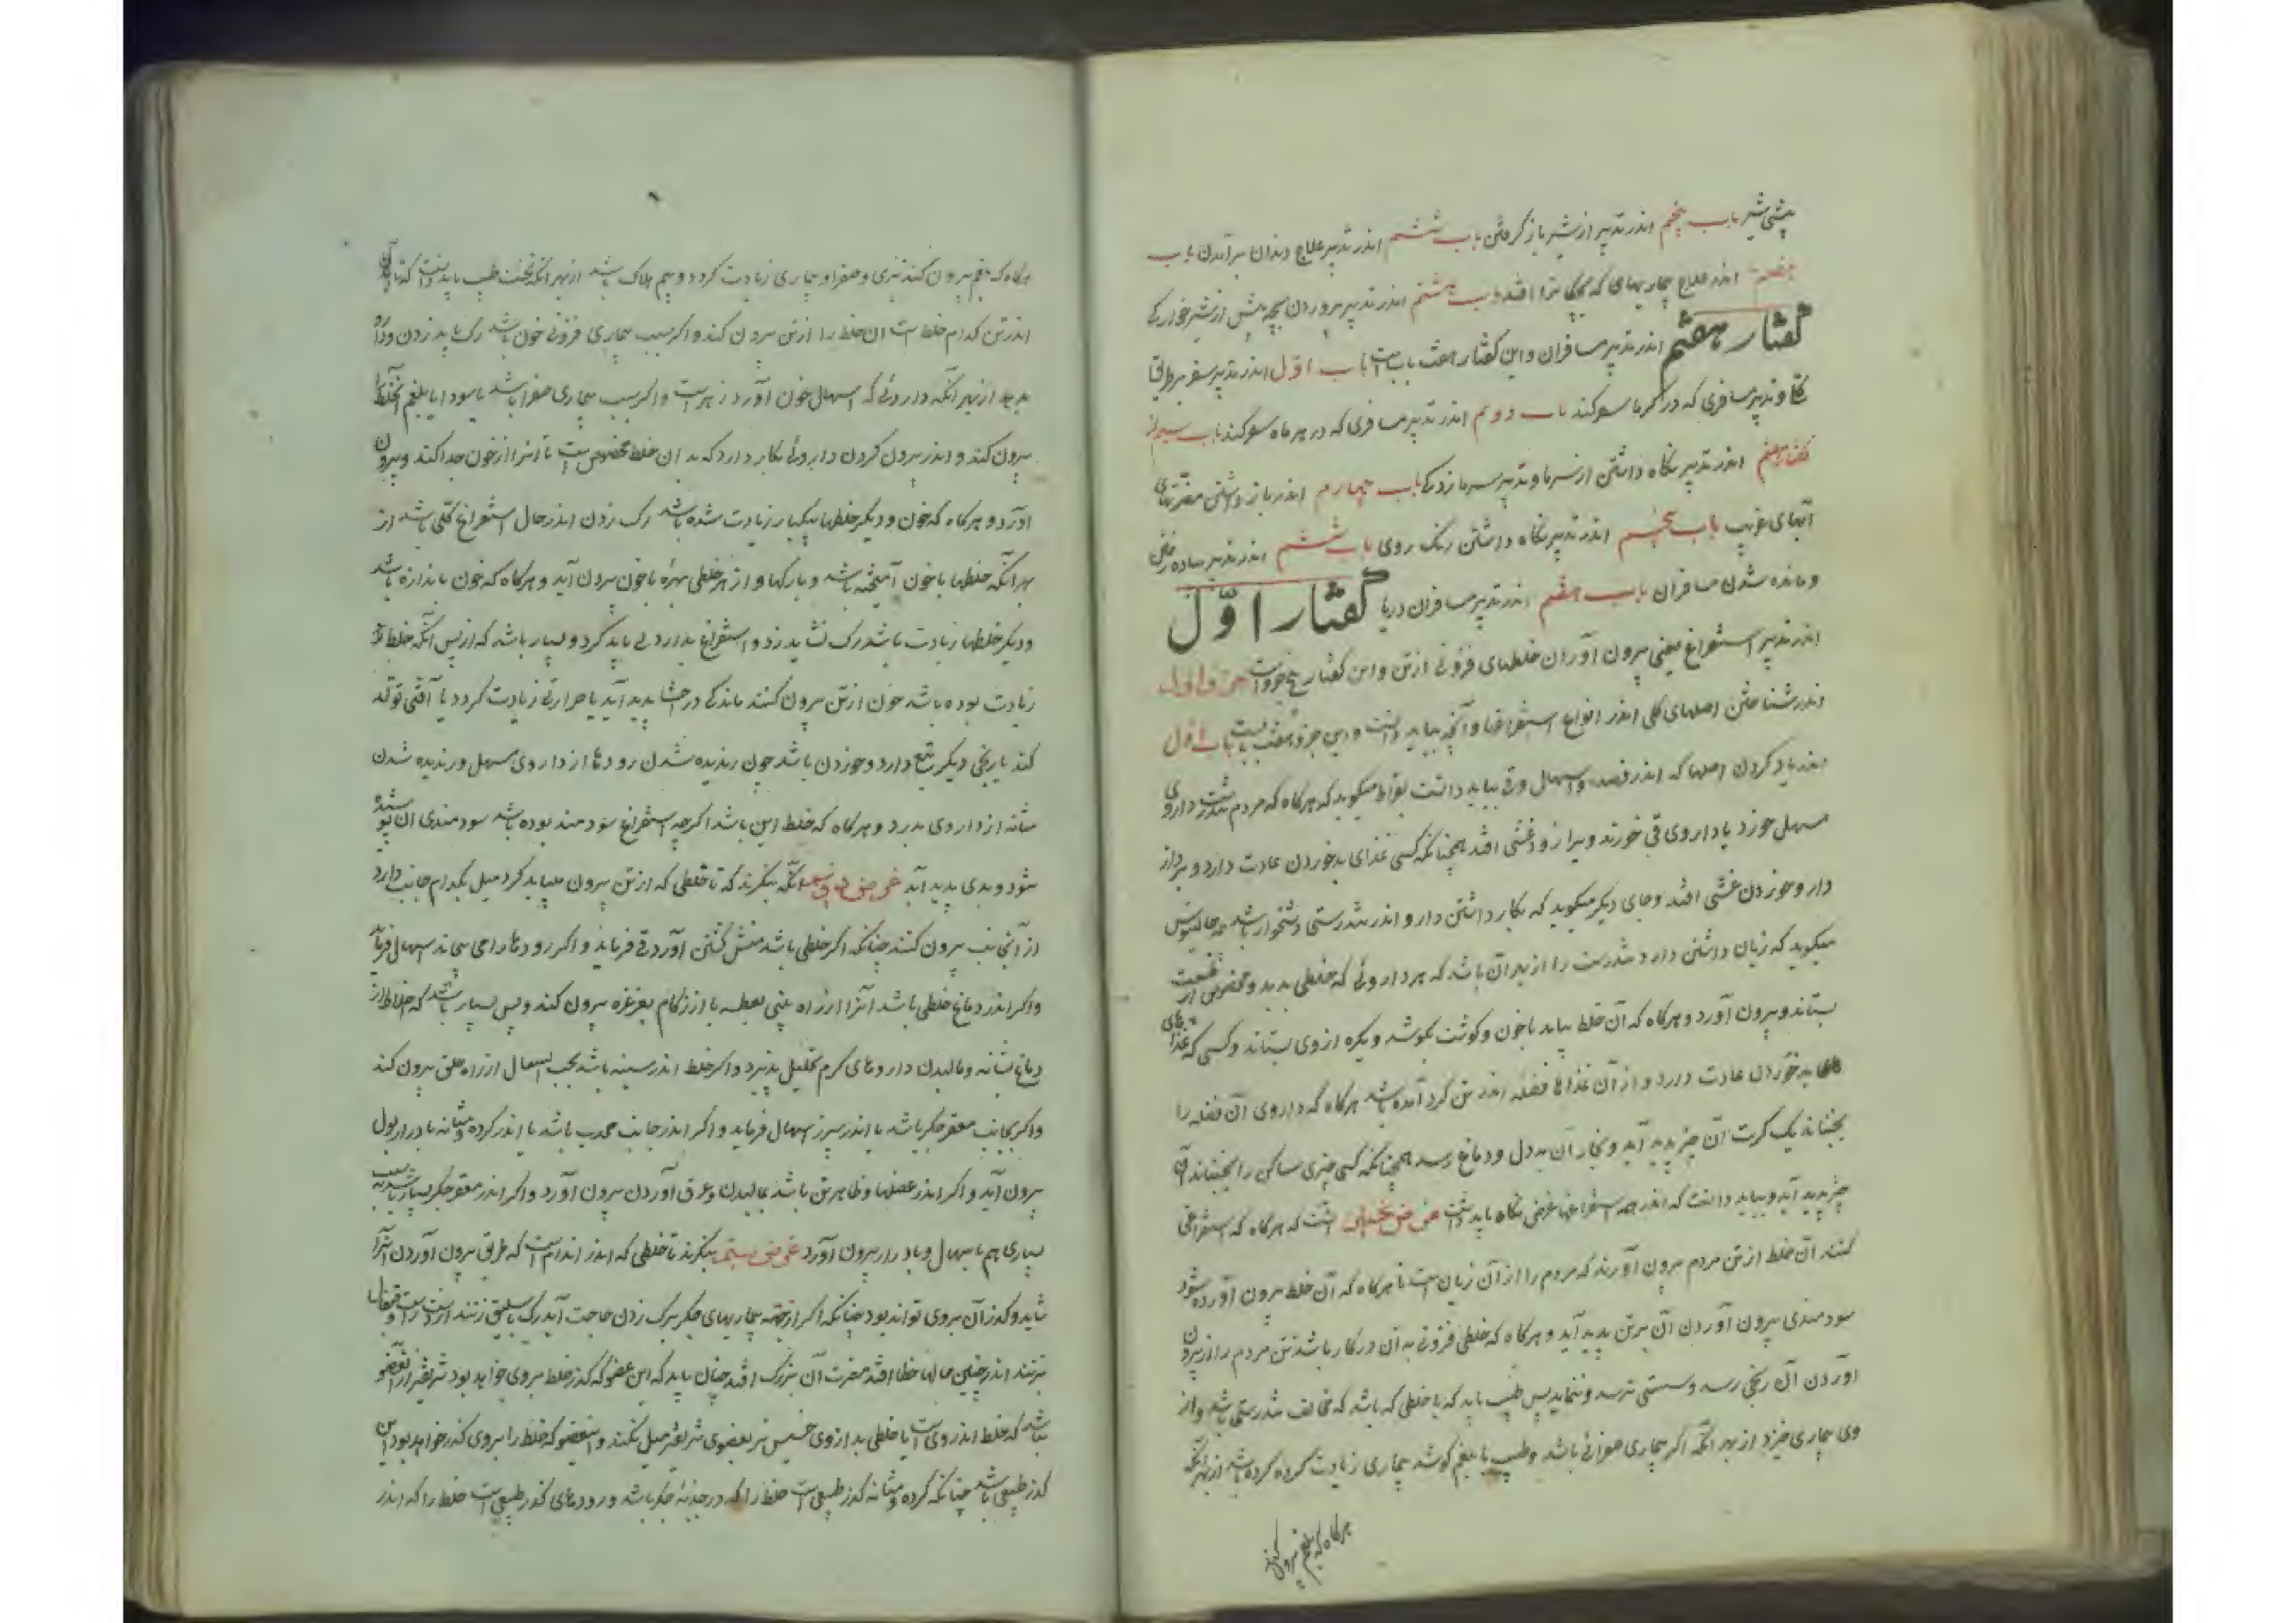 پیشی شیر باب پنجم اندر تدبیر از شیر باز کرفتن باب ششم اندر تدبیر علاج دندان برآمدن باب
هفتم اندر علاج بیماریهای که بچکانرا افتد باب هشتم اندر تدبیر پروردن بچه پیش از شیرخوارکی
گفتار هفتم اندر تدبیر مسافران و این کفتار هفت باب است باب اول اندر تدبیر سفر بر طریق
کلی و تدبیر مسافری که در کرما سفر کند باب دوم اندر تدبیر مسافری که در هر ماه سفر کند باب سیم از
گفتار هفتم اندر تدبیر نکاه داشتن از سرما و تدبیر سرمازدکی باب چهارم اندر باز داشتن مضرتهای
آبهای غریب باب پنجم اندر تدبیر نکاه داشتن رنک روی باب ششم اندر تدبیر ساده رفتن
و مانده شدن مسافران باب هفتم اندر تدبیر مسافران دریا گفتار اوّل
اندر تدبیر استفراغ یعنی بیرون آوردن خلطهای فزونی از تن و این کفتار پنج جزو است جزو اول
اندر شناختن اصلهای کلی اندر انواع استفراغها و آنچه بباید دانست و این جزو هفت باب است باب اول
اندر یاد کردن اصلها که اندر فصد و اسهال و قی بباید دانست بقراط میکوید که هرکاه که مردم تندرست داروی
مسهل خورد یا داروی قی خورند ویرا زود غشی افتد همچنانکه کسی غذای بد خوردن عادت دارد و پس از
دارو خوردن غشی افتد و جای دیکر میکوید که بکار داشتن دارو اندر تندرستی دشخوار باشد جالینوس
میکوید که زیان داشتن دارو تندرست را از بهر آن باشد که هر داروئی که خلطی بدید و مخصوص است
بستاند و بیرون آورد و هرکاه که آن خلط نیابد با خون و کوشت بکوشد و بکره از وی بستاند و کسی که غذاهای
های بد خوردن عادت دارد و از آن غذاها فضله اندر تن کرد آمده باشد هرکاه که داروی آن فضله را
بجنباند یک کرت آن چیز پدید آید و بخار آن به دل و دماغ رسد همچنانکه کسی چیزی ساکن را بجنباند آن
چیز پدید آید و بباید دانست که اندر همه استفراغها غرض نکاه باید داشت غرض نخستین آنست که هرکاه که استفراغی
کنند آن خلط از تن مردم بیرون آورند که مردم را از آن زیان است تا هرکاه که آن خلط بیرون آورده شود
سودمندی بیرون آوردن آن بر تن پدید آید و هرکاه که خلطی فزونی به آن در کار باشد تن مردم را از بیرون
آوردن آن رنجی رسد و سستی نرسد و ننماید پس طبیب باید که با خلطی که باشد که مخالف تندرستی باشد و از
وی بیماری خیزد از بهر آنکه اکر بیماری صفرائی باشد و طبیب با بلغم کوشد بیماری زیادت کرده باشد از بهر آنکه
هرکاه که بلغم بیرون کنند
هرکاه که بلغم بیرون کنند تیزی و صفرا و بیماری زیادت کردد و بیم هلاک باشد از بهر آنکه نخست طبیب باید دانست که تا
اندر تن کدام خلط است آن خلط را از تن بیرون کند و اکر سبب بیماری فزونی خون باشد رک باید زدن و دارو
بدید از بهر آنکه داروئی که اسهال خون آورد زهر است و اکر سبب بیماری صفرا باشد یا سودا یا بلغم آن خلط را
بیرون کند و اندر بیرون کردن داروئی بکار دارد که بدان خلط مخصوص است تا آنرا از خون جدا کند و بیرون
آورد و هرکاه که خون و دیکر خلطها بیکبار زیادت شده باشد رک زدن اندر حال استفراغ کلی باشد از
بهر آنکه خلطها با خون آمیخته باشد و بارکها و از هر خلطی بهرهٔ با خون بیرون آید و هرکاه که خون باندازه باشد
و دیکر خلطها زیادت باشد رک نشاید زد و استفراغ بدارو باید کرد و بسیار باشد که از پس آنکه خلط
زیادت بوده باشد خون از تن بیرون کنند ماندکی در حشا پدید آید یا حرارتی زیادت کردد یا آفتی تولد
کند یا رنجی دیکر تبع دارو خوردن باشد چون رندیده شدن رودها از داروی مسهل و رندیده شدن
مثانه از داروی مدر و هرکاه که خلط این باشد اکرچه استفراغ سودمند بوده باشد سودمندی آن پوشیده
شود و بدی پدید آید غرض دوم آنکه بنکرند که تا خلطی که از تن بیرون میباید کرد میل بکدام جانب دارد
از آنجانب بیرون کنند چنانکه اکر خلطی باشد منش کشتن آورد قی فرماید و اکر رودها را می پیچاند اسهال فرماید
و اکر اندر دماغ خلطی باشد آنرا از راه بینی بعطسه یا از کام بغرغره بیرون کند و پس بسیار باشد که خلط از
دماغ بشانه و مالیدن داروهای کرم تحلیل پذیرد و اکر خلط اندر سینه باشد بحب السعال از راه حلق بیرون کند
و اکر بجانب مقعر جکر باشد یا اندر سپرز اسهال فرماید و اکر اندر جانب محدب باشد یا اندر کرده و مثانه بادرار بول
بیرون آید و اکر اندر عضلها و ظاهر تن باشد بمالیدن و عرق آوردن بیرون آورد و اکر اندر مقعر جکر بسیار باشد
بسیاری هم باسهال و بادرار بیرون آورد غرض سیم بنکرند تا خلطی که اندر اندام است که طریق بیرون آوردن آنرا
شاید و کذر آن بروی تواند بود چنانکه اکر از جهة بیماریهای جکر برک زدن حاجت آید رک باسلیق زنند از دست راست و قیفال
نزنند اندر چنین حالها خطا افتد مضرت آن بزرک افتد چنان باید که این عضو که کذر خلط بروی خواهد بود شریفتر از آن عضو
نباشد که خلط اندر وی است یا خلطی بد از وی خسیس تر بعضوی شریفتر میل نکند و این عضو که خلط را بروی کذر خواهد بود
کذر طبیعی باشد چنانکه کرده و مثانه کذر طبیعی است خلط را که در حدبهٔ جکر باشد و رودهای کذر طبیعی است خلط را که اندر